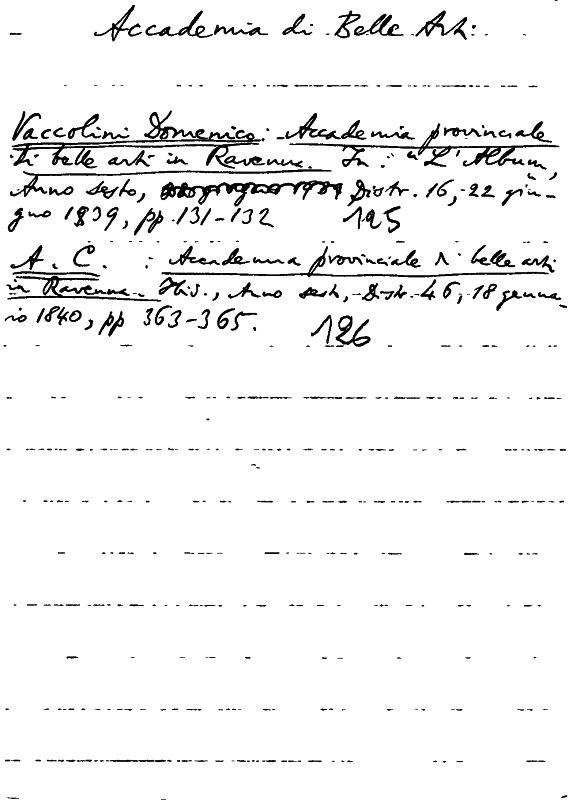 Accademia di Belle Arti:
Vaccolini Domenico: Accademia provinciale
di belle arti in Ravenna. In: "L'Album,
Anno sesto, Distr. 16, 22 giu-
gno 1839, pp. 131-132 125
A. C. : Accademia provinciale di belle arti
in Ravenna. Ibis., Anno sest., Distr. 46, 18 genna-
io 1840, pp 363-365. 126